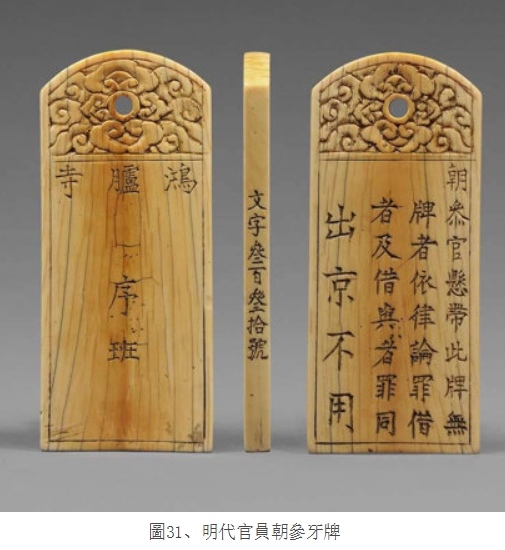 鴻臚寺
序班
文字叄百叄拾號
朝叅官懸帶此牌無
牌者依律論罪借
者及借與者罪同
出京不用
圖31、明代官員朝參牙牌